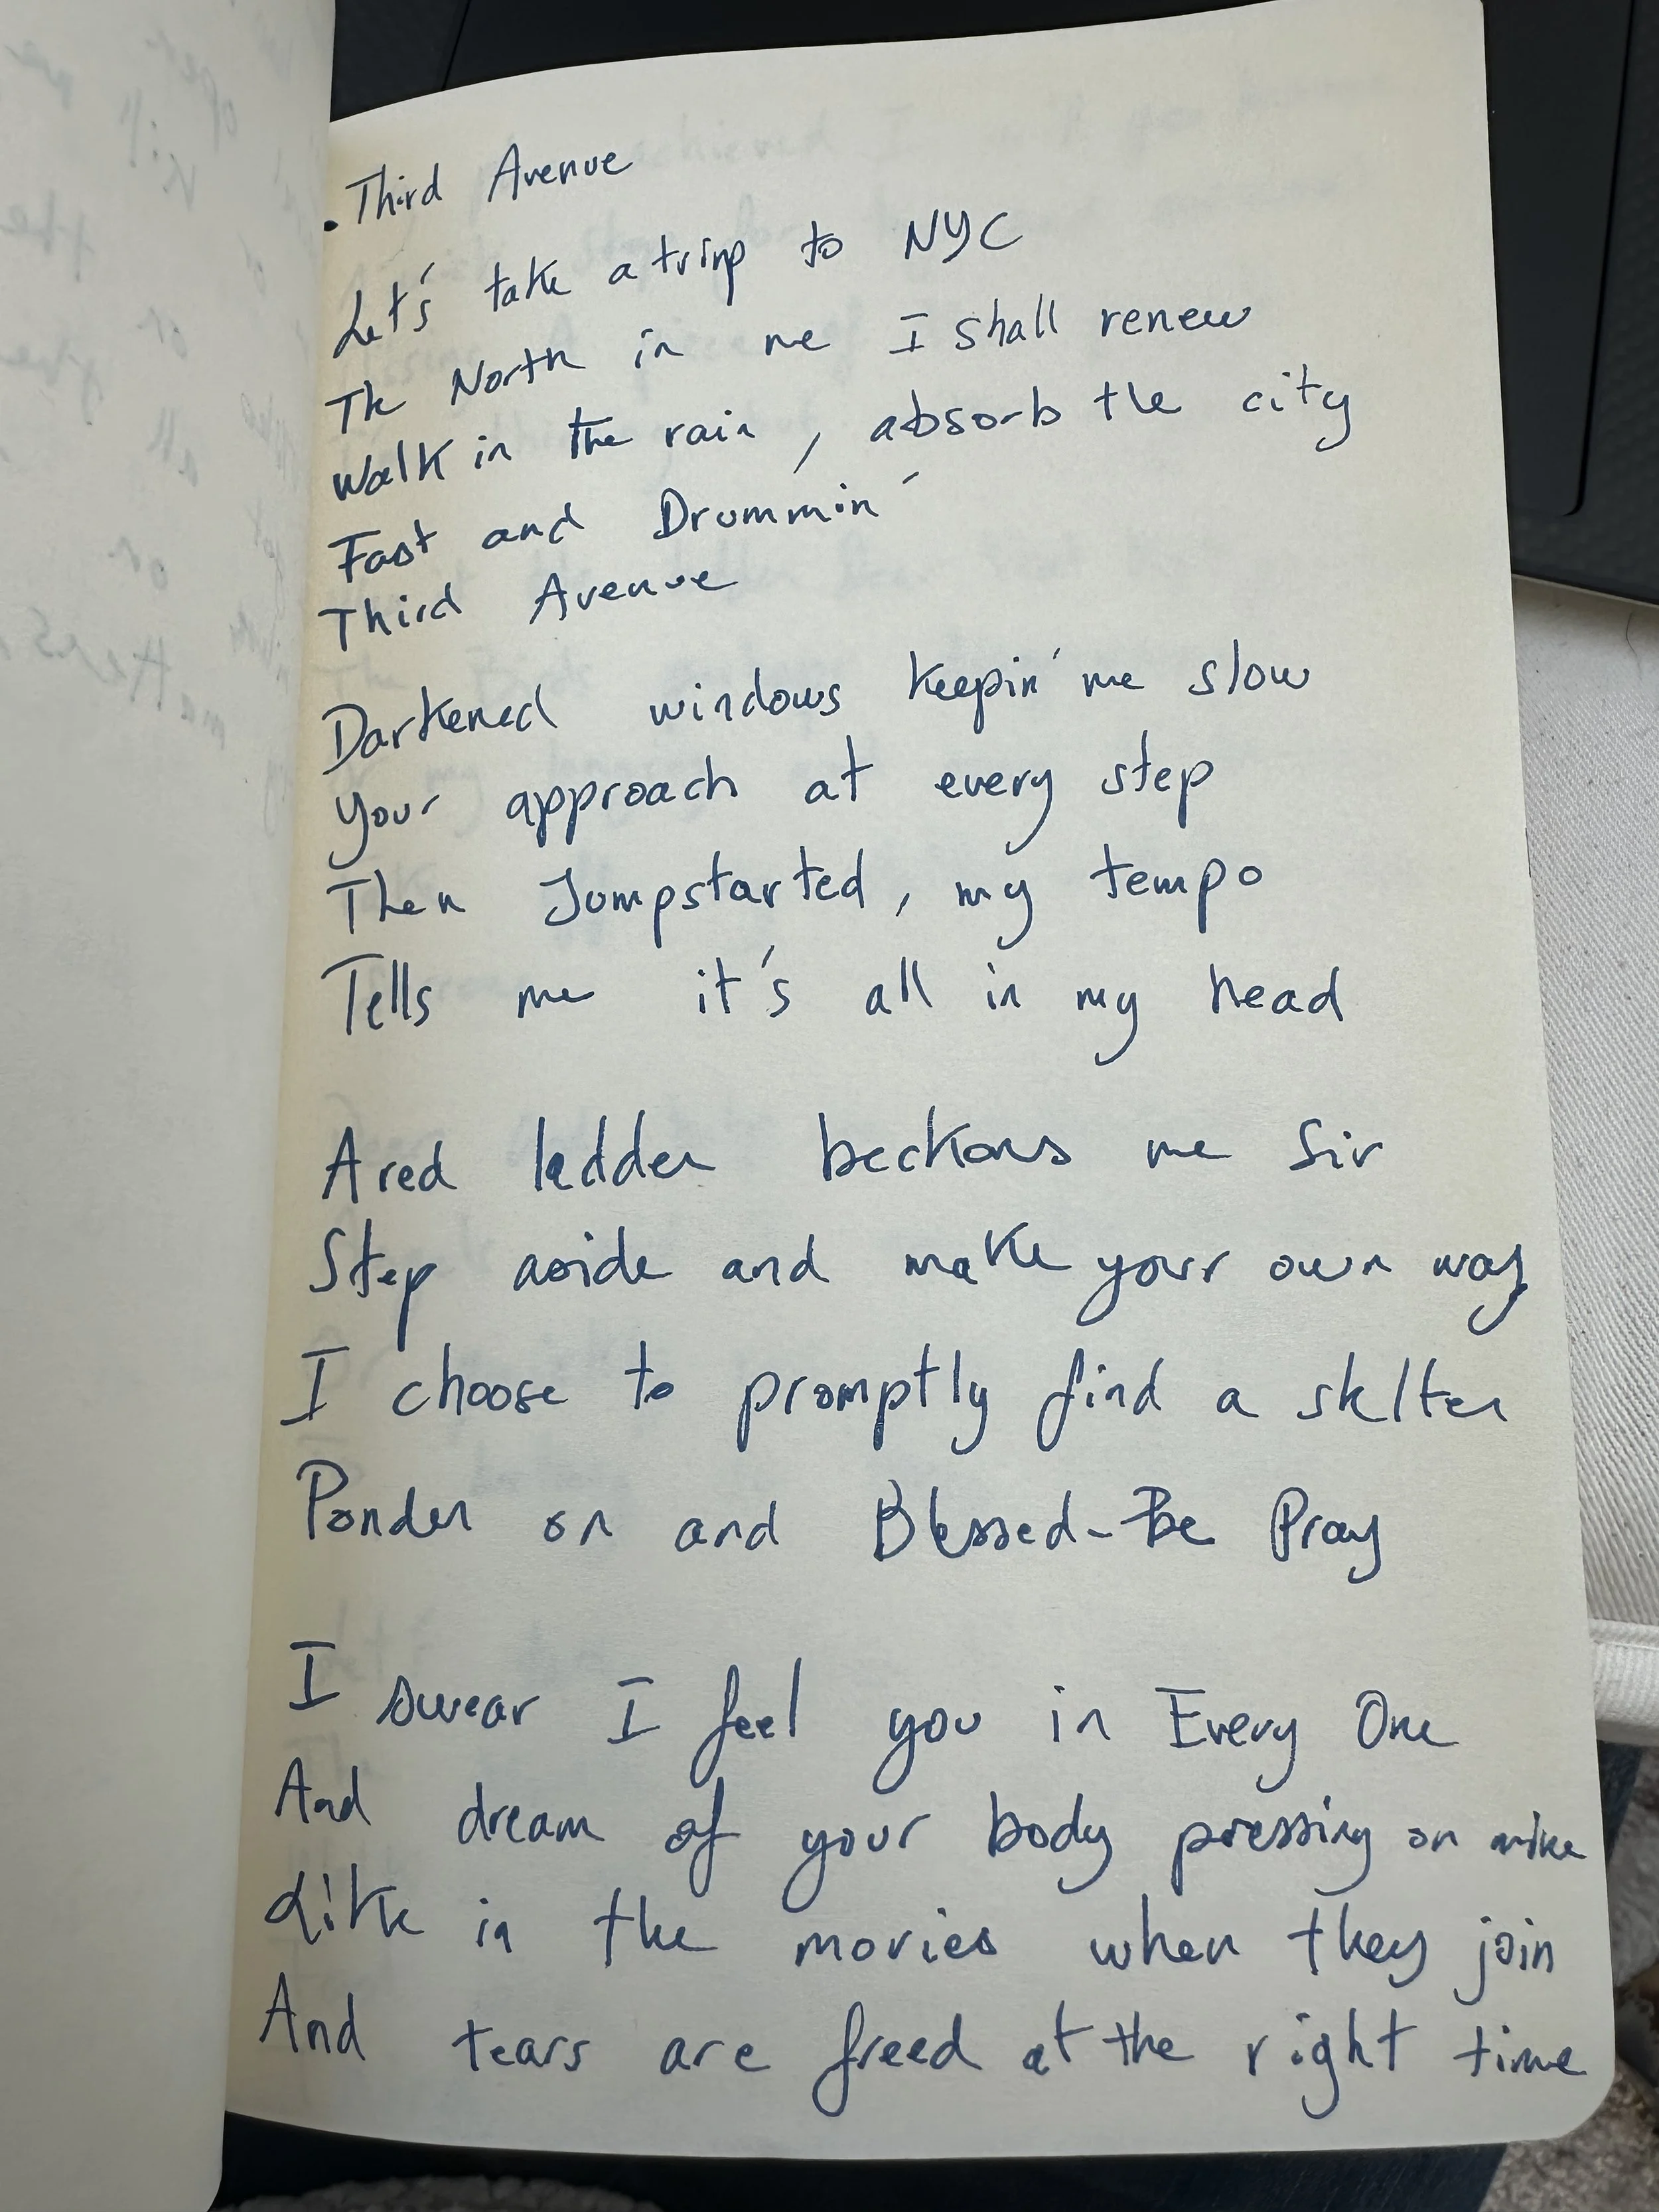 . Third Avenue
Let's take a trip to NYC
The North in me I shall renew
Walk in the rain, absorb the city
Fast and Drummin'
Third Avenue
Darkened windows keepin' me slow
Your approach at every step
Then Jumpstarted, my tempo
Tells me it's all in my head
A red ladder beckons me Sir
Step aside and make your own way
I choose to promptly find a shelter
Ponder on and Blessed-Be Pray
I swear I feel you in Every One
And dream of your body pressing on mine
Like in the movies when they join
And tears are freed at the right time